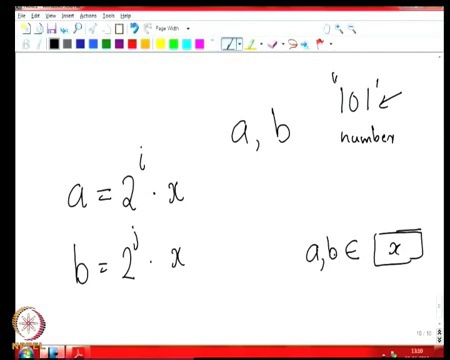 File Edit View Insert Actions Tools Help
Page Width
"101"
a, b
number
a = 2^i · x
b = 2^j · x
a,b ∈ x
10 / 10
13:10